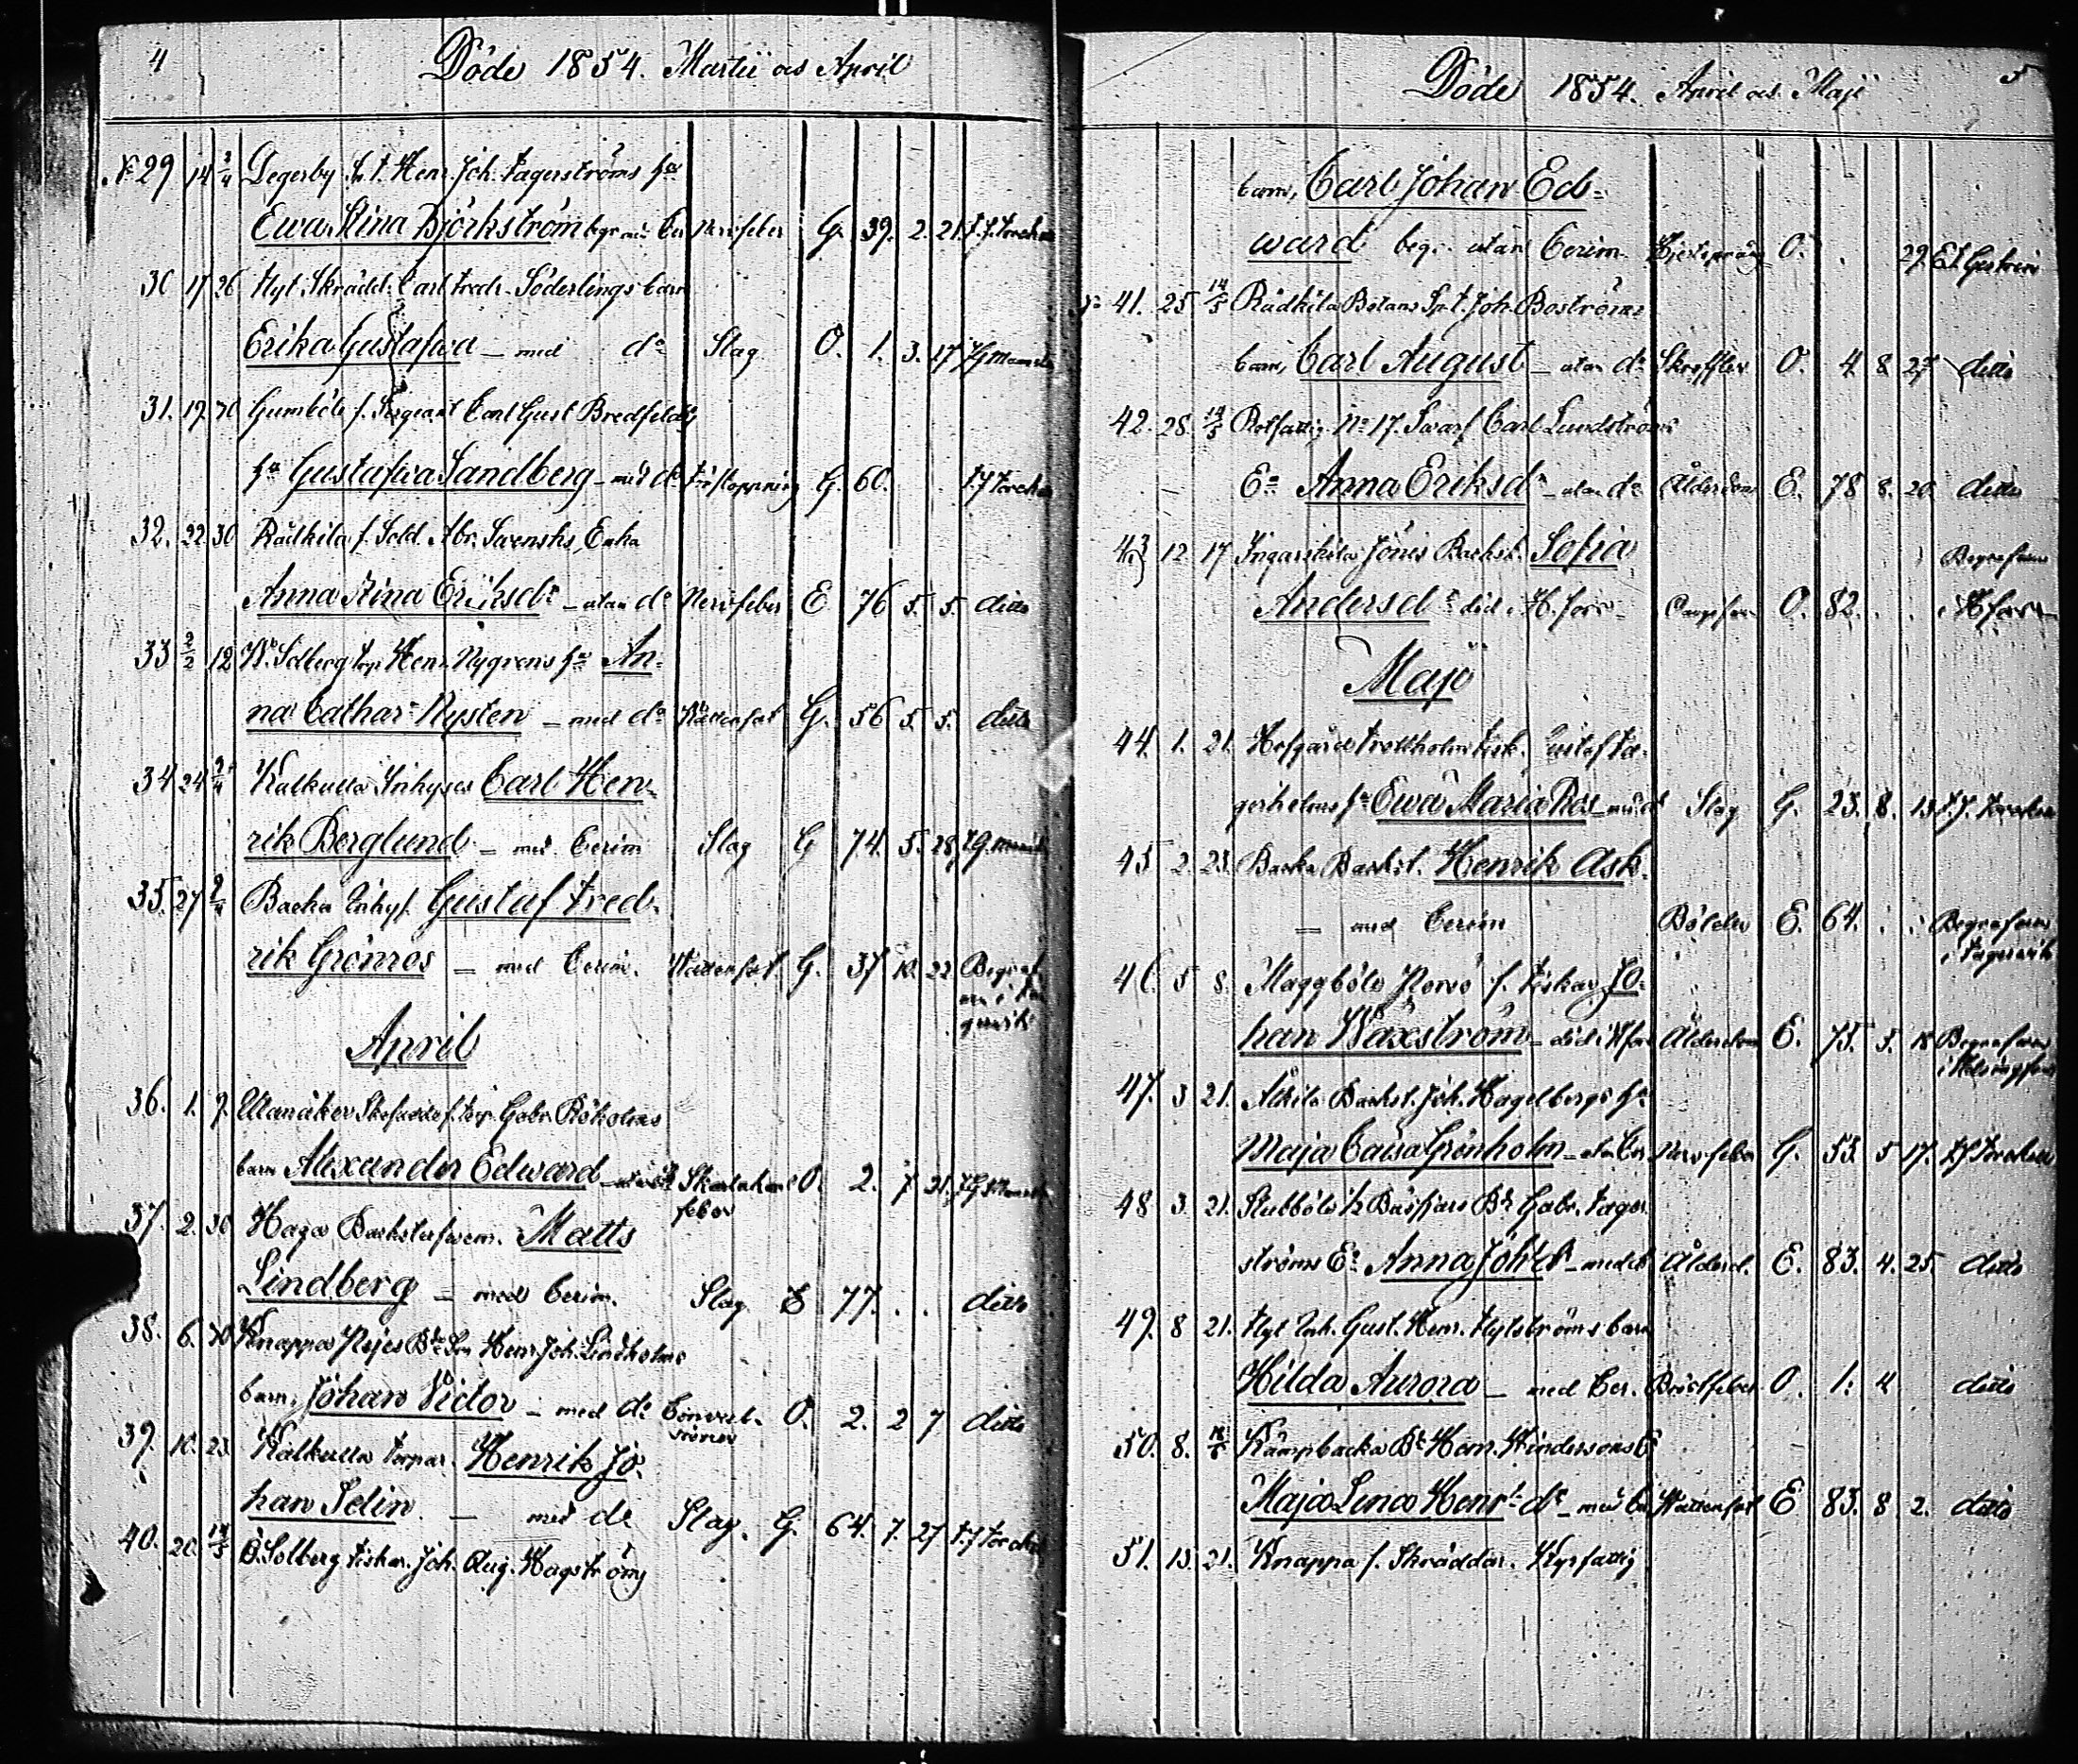 4
Döde 1854. Martii och April
No 29 14 2/4 Degerby Joh. Fagerströms hu
Ewa Stina Björkström begr. med Cer Nervfeber G. 39. 2. 21.
30 17 26 Nyl. Skrädd. Carl Fredr. Söderlings barn
Erika Gustafwa - med do Slag O. 1. 3. 17
31. 19. 30 Gumböle f. Sergeant Carl Gust Bredfeldts
hu Gustafwa Sandberg - med do Förstoppning G. 60.
32. 22. 30 Rådkila f. Sold. Abr. Swensks, Enka
Anna Stina Eriksdr - utan do Nervfeber E 76 5. 5. ditto
33 2/2 12 W. Solberg torp. Henr. Nygrens hu An-
na Cathar. Nysten - med do Wattensot G. 56 5. 5. ditto
34 24 2/4 Kalkulla Inhyses Carl Hen-
rik Berglund - med Cerim Slag G 74. 5. 28
35. 27 2/4 Backa Inhys. Gustaf Fred-
rik Grönros - med Cerim. Wattensot. G. 37 10. 22 Begraf-
en i Fa-
gerwik
April
36. 1. 9. f. torp. Gabr. Rökolms
barn Alexander Edward Skarlakans O. 2. 7 21.
feber
37. 2. 30 Haga Backstufwem. Matts
Lindberg - med Cerim. Slag E 77. . . ditto
38. 6. 30 Knappas Nejes Bde Son Henr. Joh. Lindholms
barn, Johan Victor - med do Convul- O. 2. 2 7 ditto
sioner
39. 10. 23. Kalkulla torpar. Henrik Jo-
han Selin - med do Slag. G. 64. 7. 27
40. 20. 14/5 Ö. Solberg fiskar. Joh. Aug. Hagströms
Döde 1854. April och Maji 5
barn, Carl Johan Ed-
ward beg. utan Cerim. O. . 29.
No 41. 25 14/5 Rådkila Botans Joh. Boströms
barn, Carl August - utan do Skrofflor O. 4. 8 27 ditto
42. 28. 14/5 Rotfattig No 17. Swarf Carl Lundströms
Ea Anna Eriksdr - utan do Ålderdom E. 78 8. 20 ditto
43 12 17 Ingarskila Jönes Backst. Sofia Begrafwen
Andersdr död i H.fors O. 82. . . i H.fors
Maji
44. 1. 21. Hofgård Trollholm Fisk. Gustaf Fa-
gerholms hu Ewa Maria Ros - med do Slag G. 23. 8. 13
45 2. 23. Backa Backst. Henrik Ask.
- med Cerim Bölder E. 64. . . Begrafwen
i Fagerwik
46. 5 8. Maggböle Norrö f. Fiskar Jo-
han Waxström - död i Hfors Ålderdom E. 75. 5. 18 Begrafwen
i Helsingfors
47. 3 21. Åkila Backst. Joh. Hagelbergs hu
Maja Caisa Grönholm - utan Cer. Nervfeber G. 53 5 17.
48 3. 21. Stubböle Bässars Bde Gabr. Fager-
ströms Ea Anna Johdr - med do Ålderd. E. 83. 4. 25. ditto
49. 8 21. Nyl Inh. Gust. Henr. Nylströms barn
Hilda Aurora - med Cer. Bröstfeber O. 1. 4 ditto
50. 8. Kämpbacka Bde Henr. Hindersons Ea
Maja Lena Henrs dr - med Cer. Wattensot E 83. 8 2. ditto
51. 13. 21. Knappa f. Skräddar. Kyrfattig